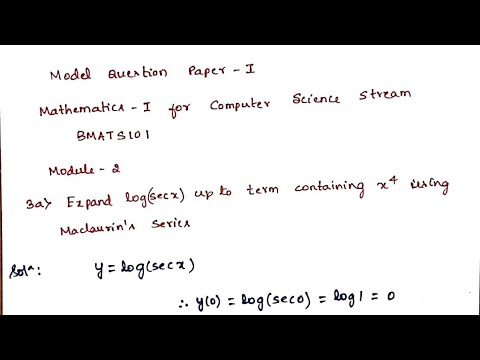 Model Question Paper - I
Mathematics - I for Computer Science Stream
BMATS101
Module - 2
3a) Expand log(secx) up to term containing x⁴ using
Maclaurin's Series
Solⁿ: y = log(secx)
∴ y(0) = log(sec0) = log1 = 0